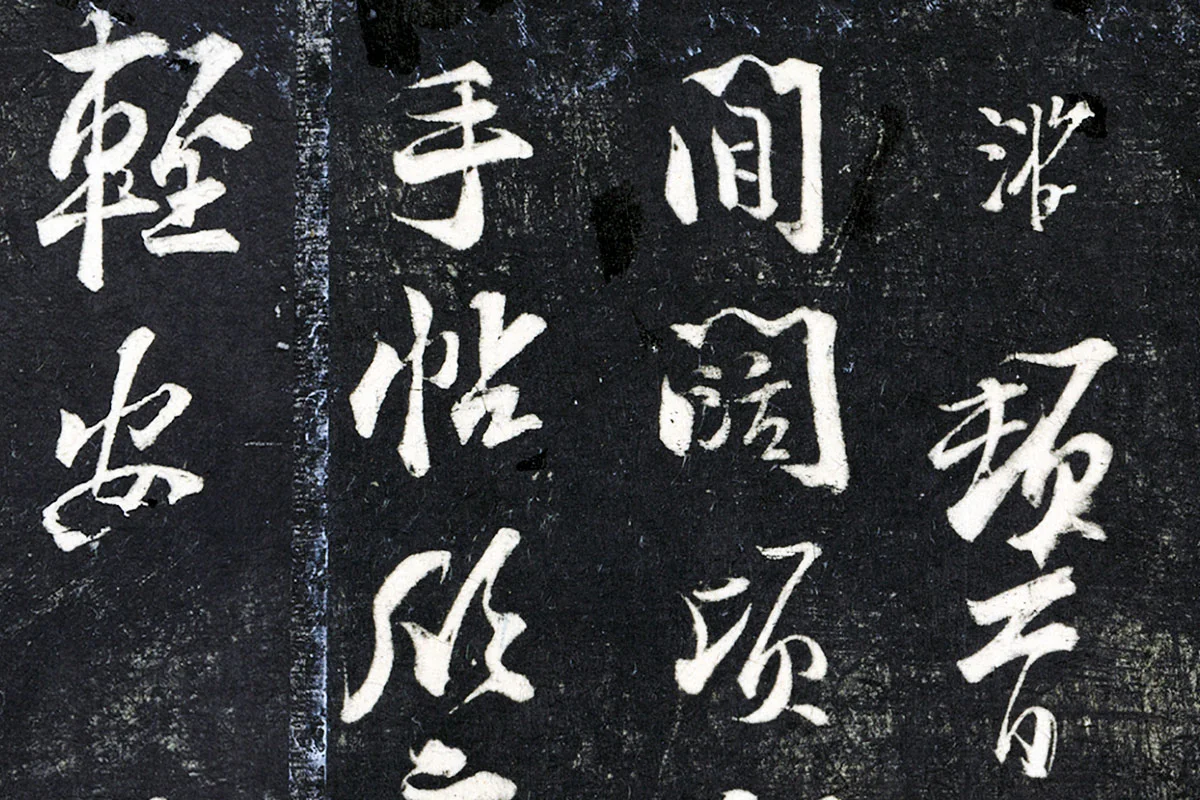 頓首
間闊頃
手帖欣
輕安